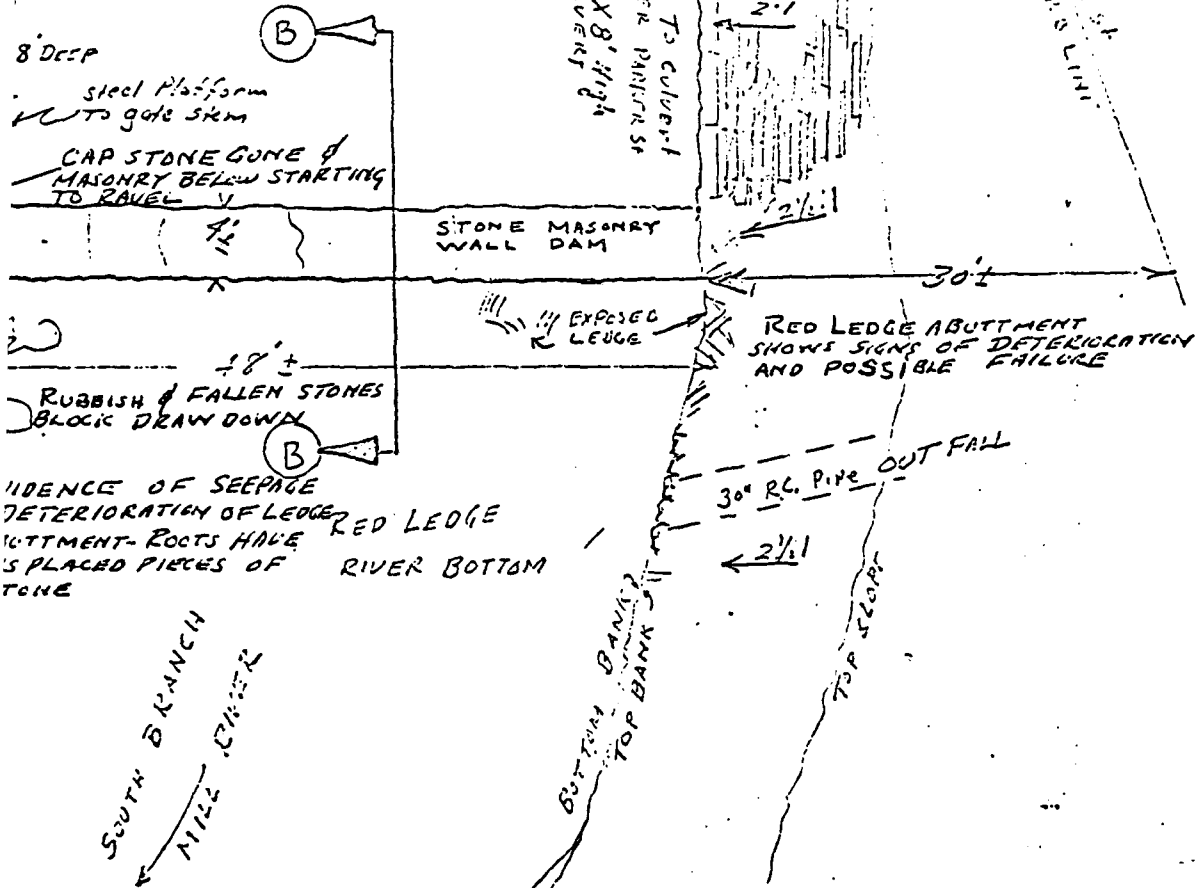 B
8' DEEP
steel Platform
To gate stem
CAP STONE GONE &
MASONRY BELOW STARTING
TO RAVEL
STONE MASONRY
WALL DAM
TO CULVERT
ER PARKER St
X 8' High
VERT
2:1
2½:1
30'±
EXPOSED
LEDGE
RED LEDGE ABUTTMENT
SHOWS SIGNS OF DETERIORATION
AND POSSIBLE FAILURE
8'±
RUBBISH & FALLEN STONES
BLOCK DRAW DOWN
B
IDENCE OF SEEPAGE
DETERIORATION OF LEDGE
UTTMENT- ROOTS HAVE
ISPLACED PIECES OF
TONE
RED LEDGE
RIVER BOTTOM
30" R.C. Pipe OUT FALL
2½:1
BOTTOM BANK
TOP BANK
TOP SLOPE
SOUTH BRANCH
MILL RIVER